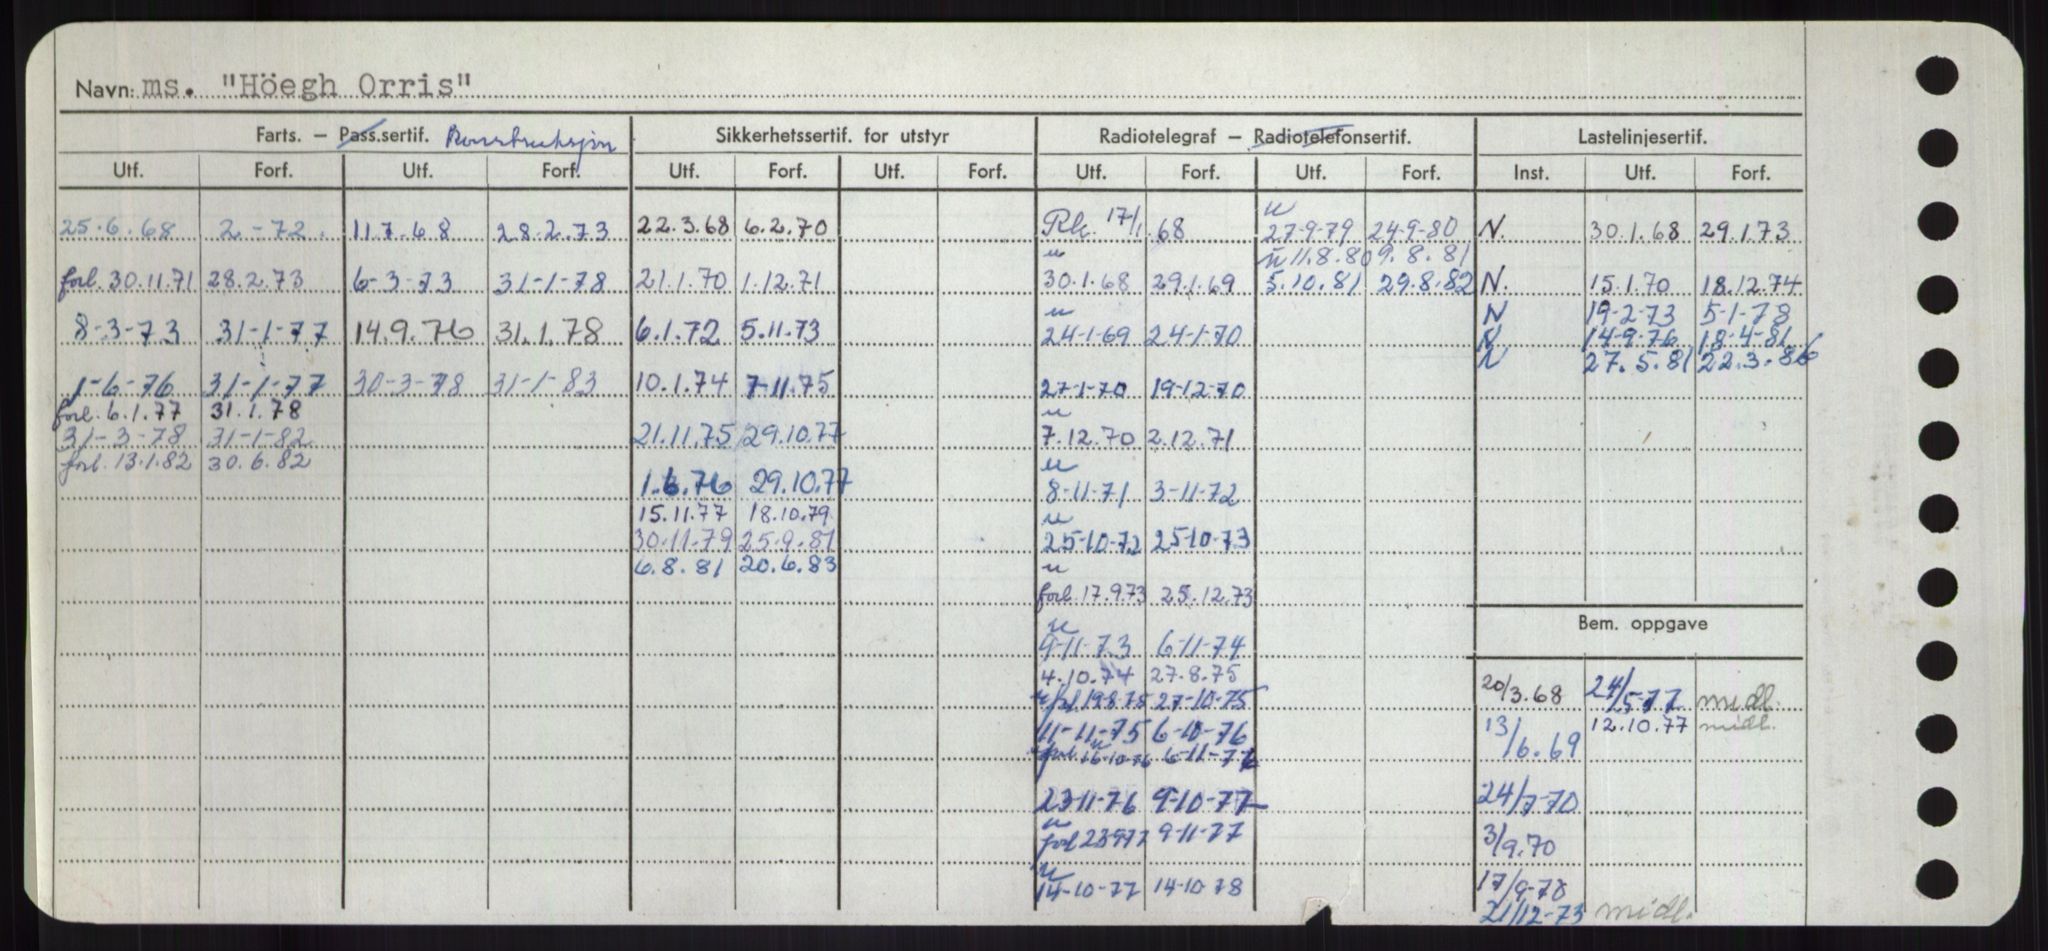 Navn: ms. "Höegh Orris"
Farts. – Pass.sertif. Konstruksjon Sikkerhetssertif. for utstyr Radiotelegraf – Radiotelefonsertif. Lastelinjesertif.
Utf. Forf. Utf. Forf. Utf. Forf. Utf. Forf. Utf. Forf. Utf. Forf. Inst. Utf. Forf.
25.6.68 2-72. 11.7.68 28.2.73 22.3.68 6.2.70 Rk. 17/1.68 u 27-9-79 24-9-80 N. 30.1.68 29.1.73
u u 11.8.80 9.8.81
forl. 30.11.71 28.2.73 6-3-73 31-1-78 21.1.70 1.12.71 30.1.68 29.1.69 5.10.81 29.8.82 N. 15.1.70 18.12.74
u N 19-2-73 5-1-78
8-3-73 31-1-77 14.9.76 31.1.78 6.1.72 5.11.73 24-1-69 24-1-70 N 14-9-76 18-4-81
N 27.5.81 22.3.86
1-6-76 31-1-77 30-3-78 31-1-83 10.1.74 7-11.75 27-1-70 19-12-70
forl. 6.1.77 31.1.78 u
31-3-78 31-1-82 21.11.75 29.10.77 7.12.70 2.12.71
forl. 13.1.82 30.6.82 u
1.6.76 29.10.77 8-11-71 3-11-72
15.11.77 18.10.79 u
30.11.79 25.9.81 25-10-72 25-10-73
6.8.81 20.6.83 u
forl. 17.9.73 25.12.73
u Bem. oppgave
9-11-73 6-11-74
4.10.74 27.8.75 20/3.68 24/5-77 midl.
forl. 19.8.75 27-10-75
11-11-75 6-10-76 13/6.69 12.10.77 midl.
u
forl. 16-10-76 6-11-76
23-11-76 9-10-77 24/7-70
u
forl 23977 9-11-77 3/9.70
u
14-10-77 14-10-78 17/9-78
21/12-73 midl.